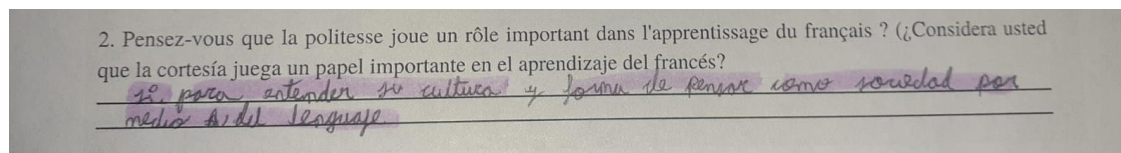 2. Pensez-vous que la politesse joue un rôle important dans l'apprentissage du français ? (¿Considera usted
que la cortesía juega un papel importante en el aprendizaje del francés?
si, para entender su cultura y forma de pensar como sociedad por
medio del lenguaje